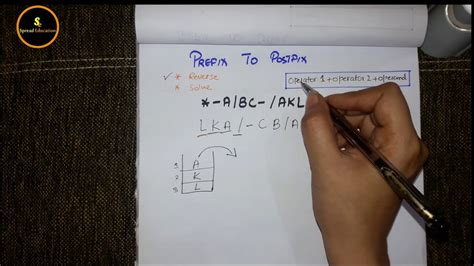 S
Spread Education
PREFIX TO POSTFIX
✓ * Reverse
* Solve
operator 1 + operator 2 + operand
*-A/BC-/AKL
LKA/-CB/A
1. A
2. K
3. L